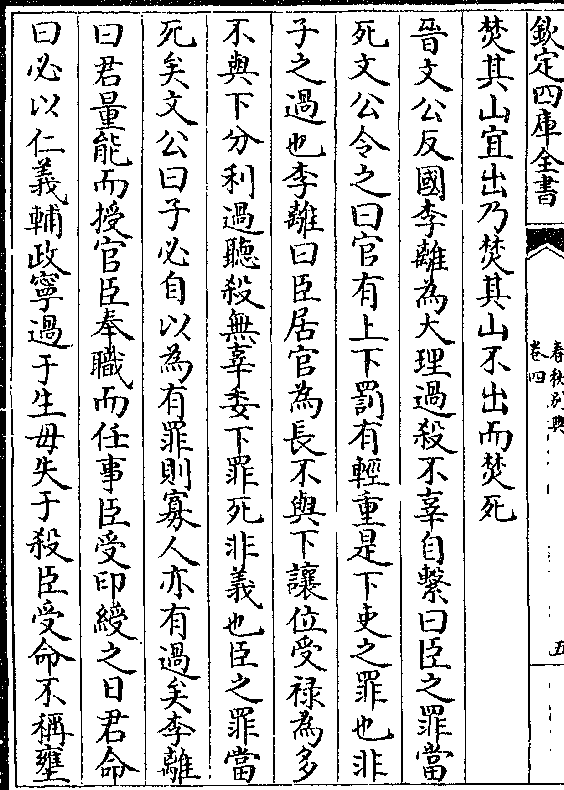 欽定四庫全書
春秋別典
卷四
五
焚其山宜出乃焚其山不出而焚死
晉文公反國李離為大理過殺不辜自繫曰臣之罪當
死文公令之曰官有上下罰有輕重是下吏之罪也非
子之過也李離曰臣居官為長不與下讓位受祿為多
不與下分利過聽殺無辜委下罪死非義也臣之罪當
死矣文公曰子必自以為有罪則寡人亦有過矣李離
曰君量能而授官臣奉職而任事臣受印綬之日君命
曰必以仁義輔政寧過于生毋失于殺臣受命不稱壅